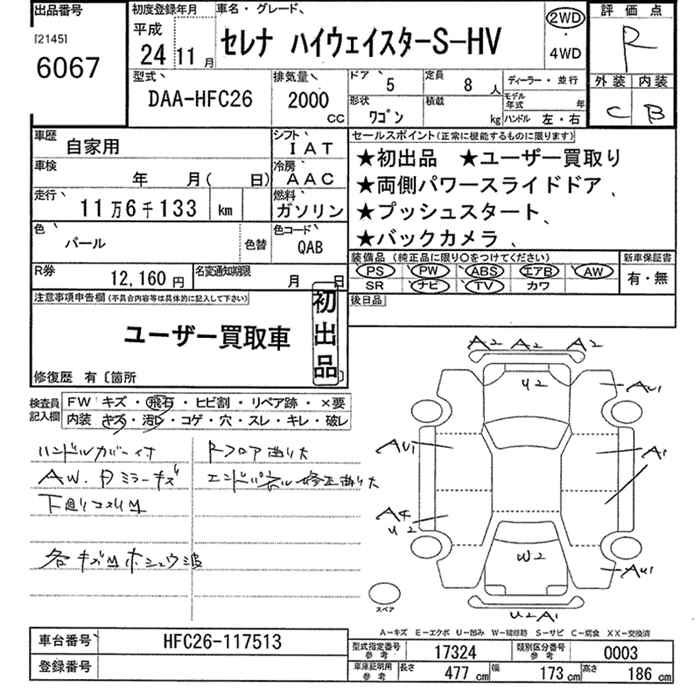 出品番号
[2145]
6067
初度登録年月
平成
24年
11月
車名・グレード、
セレナ ハイウェイスターS-HV
2WD
・
4WD
評価点
R
外装 内装
C B
型式
DAA-HFC26
排気量
2000 CC
ドア 5
定員 8 人
形状 ワゴン
積載 kg
ディーラー・並行
モデル年式 年
ハンドル 左・右
車歴 自家用
シフト IAT
車検 年 月( 日)
冷房 AAC
走行 11万6千133 km
燃料 ガソリン
色 パール 色替
色コード QAB
R券 12,160円
名変通知期限 月 日
セールスポイント(正常に機能するものに限ります)
★初出品 ★ユーザー買取り
★両側パワースライドドア、
★プッシュスタート、
★バックカメラ、
装備品 (純正品に限り○をつけてください)
PS PW ABS エアB AW
SR ナビ TV カワ
新車保証書
有・無
後日品
注意事項申告欄(不具合内容等は具体的に記入して下さい)
ユーザー買取車
初出品
修復歴 有〔箇所
検査員記入欄
FW キズ・飛石・ヒビ割・リペア跡・×要
内装 キズ・汚レ・コゲ・穴・スレ・キレ・破レ
ハンドルカバー付
AW.Dミラーキズ
下廻りコスリM
各キズMホシュウ済
Rフロア曲り大
エンドパネル修正曲り大
A2 A2 A2
U2
AU1
AU1
A1
A4
U2
U2
AU1
U2A1
スペア
A-キズ E-エクボ U-凹み W-補修跡 S-サビ C-腐食 XX-交換済
車台番号 HFC26-117513
登録番号
型式指定番号 参考 17324
類別区分番号 参考 0003
車庫証明用 参考 長さ 477 cm 幅 173 cm 高さ 186 cm